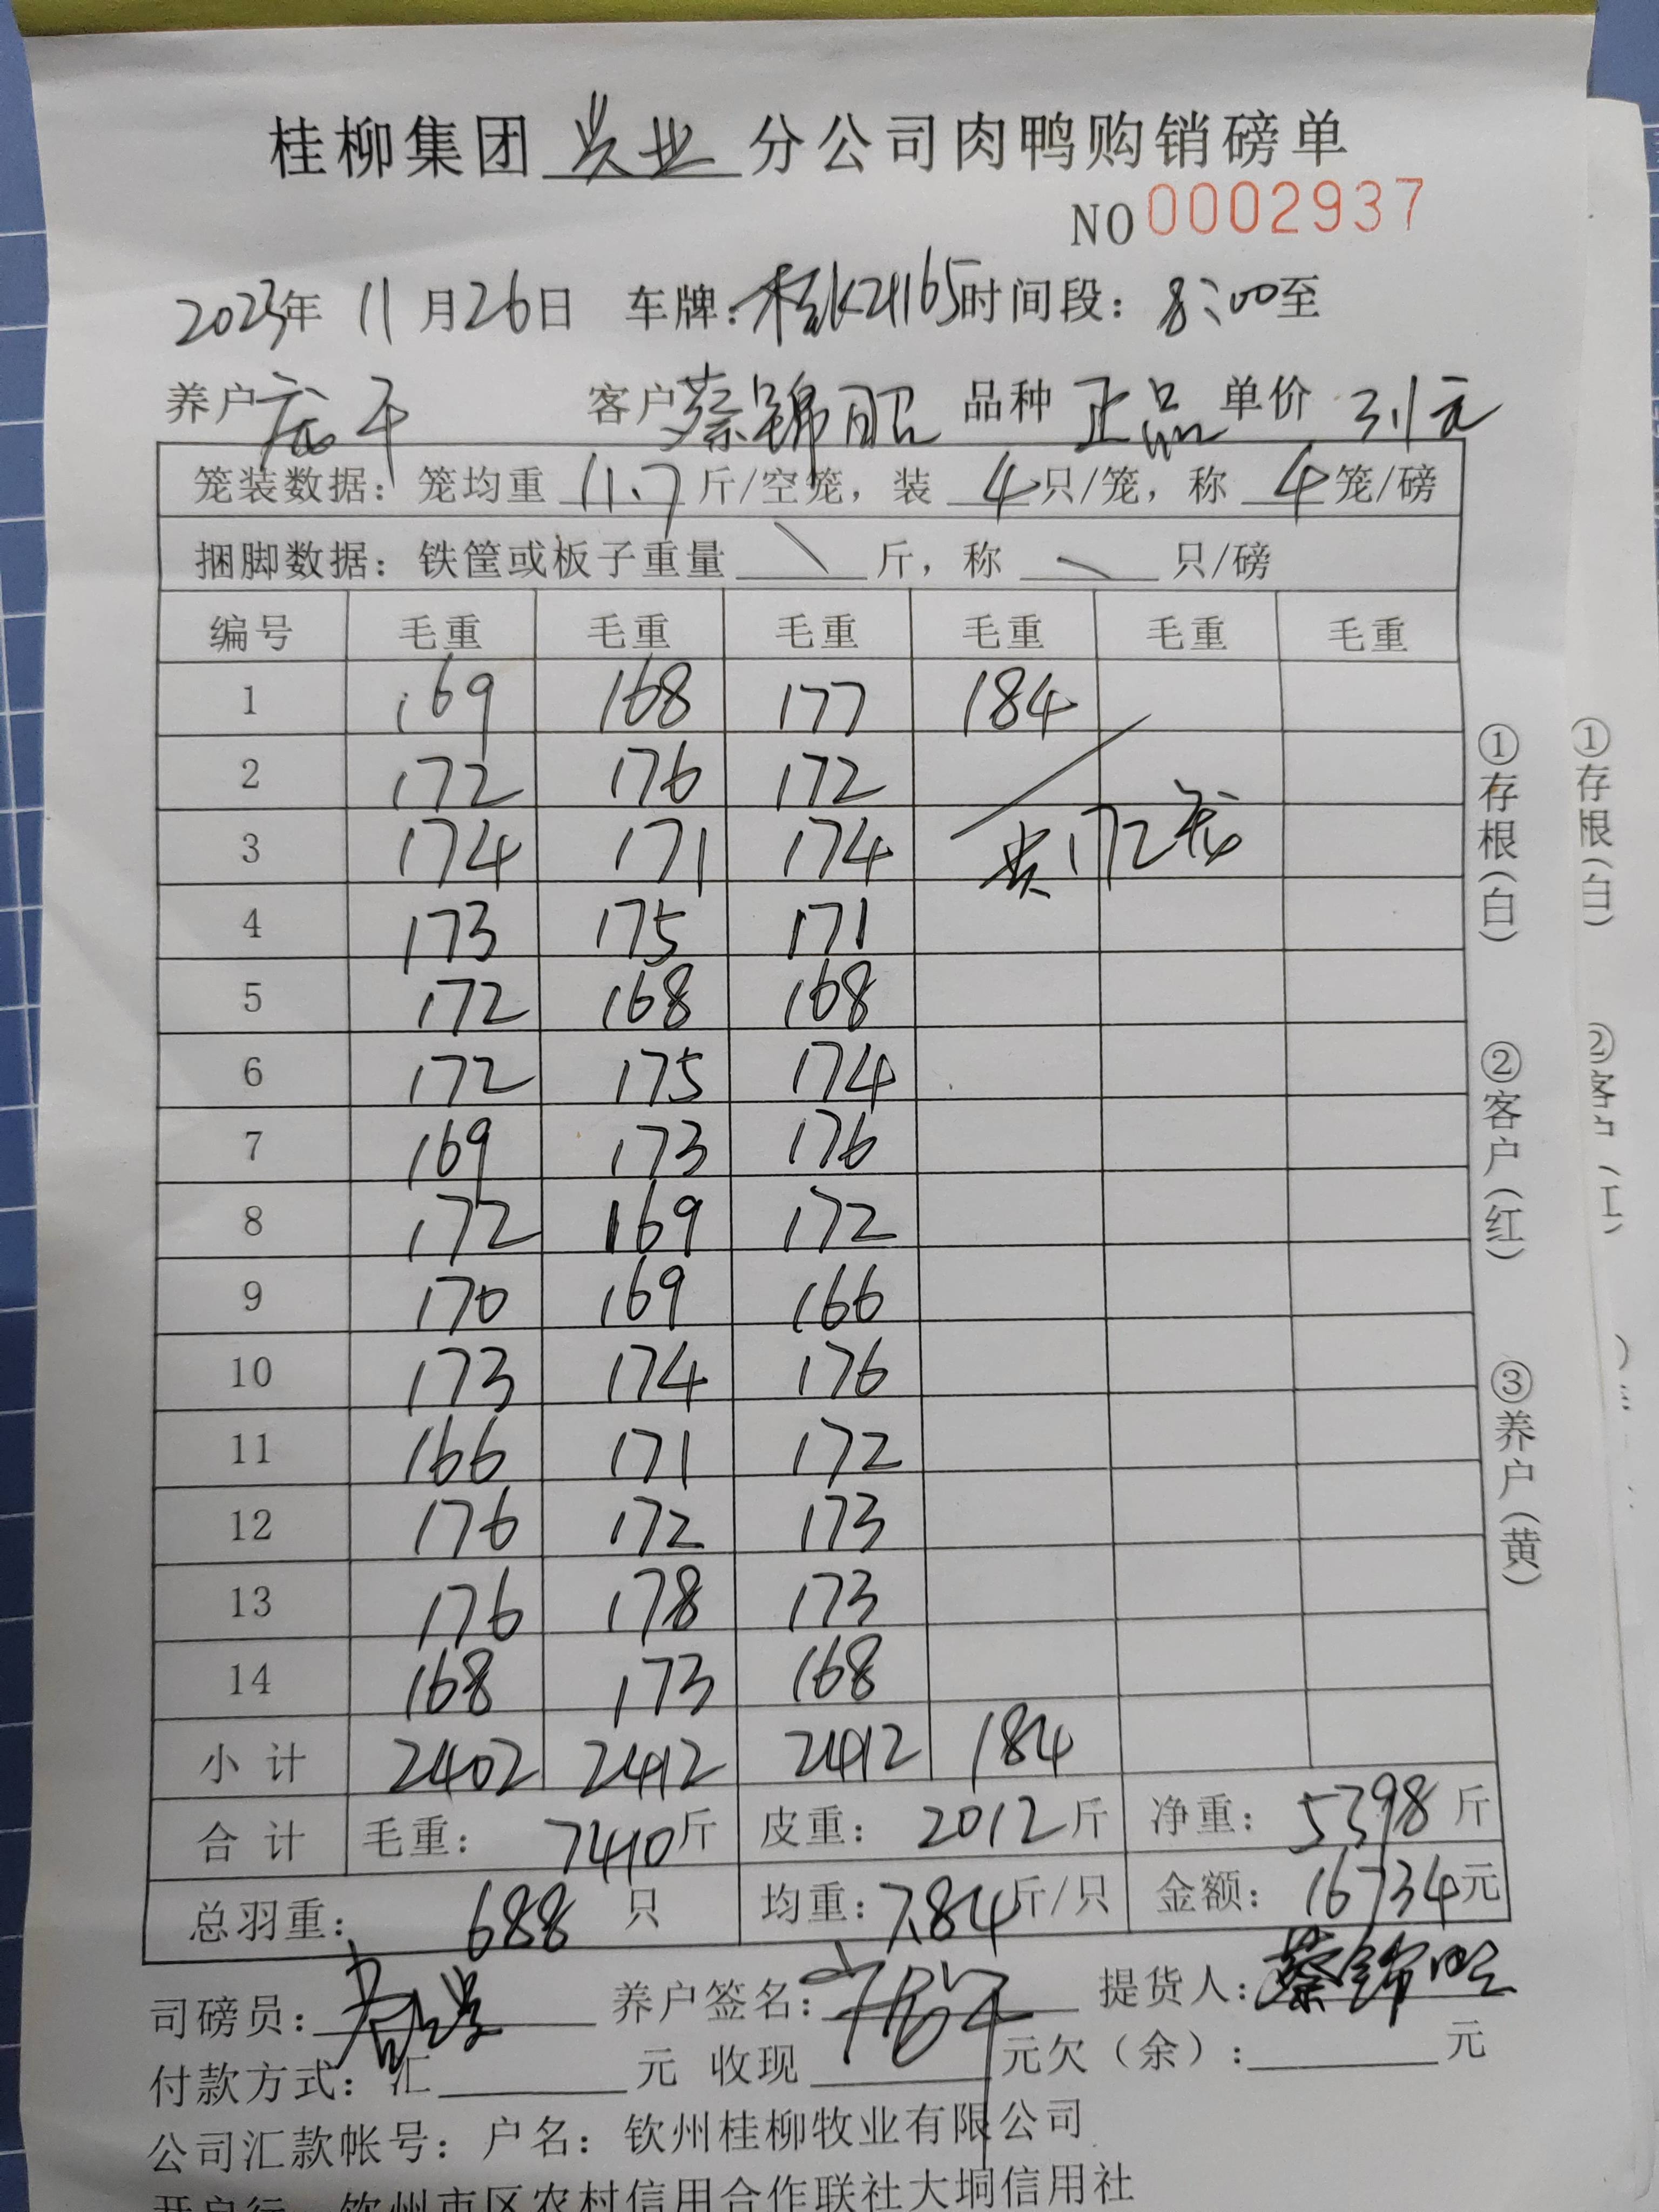 桂柳集团 兴业 分公司肉鸭购销磅单
NO 0002937
2023年 11月26日 车牌:桂K21165时间段:8:00至
养户 客户 蔡锦昭 品种 正品 单价 3.1元
笼装数据:笼均重 11.7 斤/空笼,装 4 只/笼,称 4 笼/磅
捆脚数据:铁筐或板子重量 \ 斤,称 \ 只/磅
编号 毛重 毛重 毛重 毛重 毛重 毛重
1 169 168 177 184
2 172 176 172
3 174 171 174 共172笼
4 173 175 171
5 172 168 168
6 172 175 174
7 169 173 176
8 172 169 172
9 170 169 166
10 173 174 176
11 166 171 172
12 176 172 173
13 176 178 173
14 168 173 168
小计 2402 2412 2412 184
合计 毛重:7410斤 皮重:2012斤 净重:5398斤
总羽重:688 只 均重:7.84斤/只 金额:16734元
司磅员: 养户签名: 提货人:蔡锦昭
付款方式:汇 元 收现 元欠(余): 元
公司汇款帐号:户名:钦州桂柳牧业有限公司
开户行 钦州市区农村信用合作联社大垌信用社
①存根(白)
②客户(红)
③养户(黄)
①存根(白)
②客户(红)